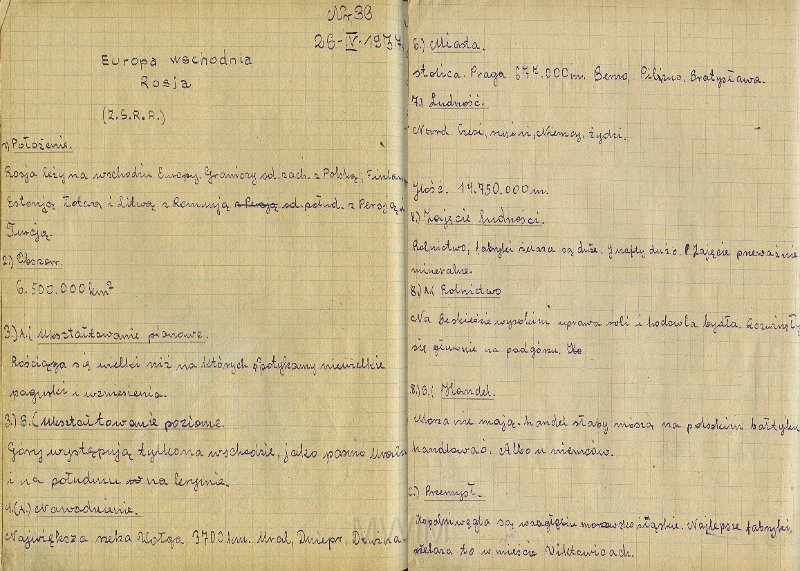 Nr 36
26-IV-1937
Europa wschodnia
Rosja
(Z.S.R.A.)
1) Położenie.
Rosja leży na wschodzie Europy. Graniczy od zach. z Polską,
Estonją Łotwą i Litwą z Rumunją z Persją od połud. z Persją
Turcją.
2.) Obszar.
6.500.000 km²
3.) A.( Ukształtowanie pionowe.
Rościąga się wielki niż na których spotykamy niewielkie
pagurki i wzniesienia.
3.) B.( Ukształtowanie poziome.
Góry występują tylko na wschodzie, jako pasmo Uralu
i na południu na krymie.
4.(A.) Nawadnienie.
Największa rzeka Wołga 3700 km. Ural, Dniepr,
6.) Miasta.
stolica. Praga 677.000 m. Berno, Pilzno, Bratysława.
7.) Ludność.
Narod. Czesi, Niemcy, żydzi.
Ilość. 14.750.000 m.
8.) Zajęcie ludności.
Rolnictwo, fabryki żelaza są duże. I nafty dużo. Zajęcie przeważnie
mineralne.
8.) A.( Rolnictwo
Na Beskidzie wysokim uprawa roli i hodowla bydła.
się głuwnie na padgórzu.
8.) B.( Handel.
Moża nie mają. handel słaby muszą na polskim bałtyku
handlować. Albo u niemców.
C.) Przemysł.
Kopalni węgla są w zagłęciu morawsko śląskie. Najlepsze fabryki
żelaza to w mieście Viktwicach.
MWM